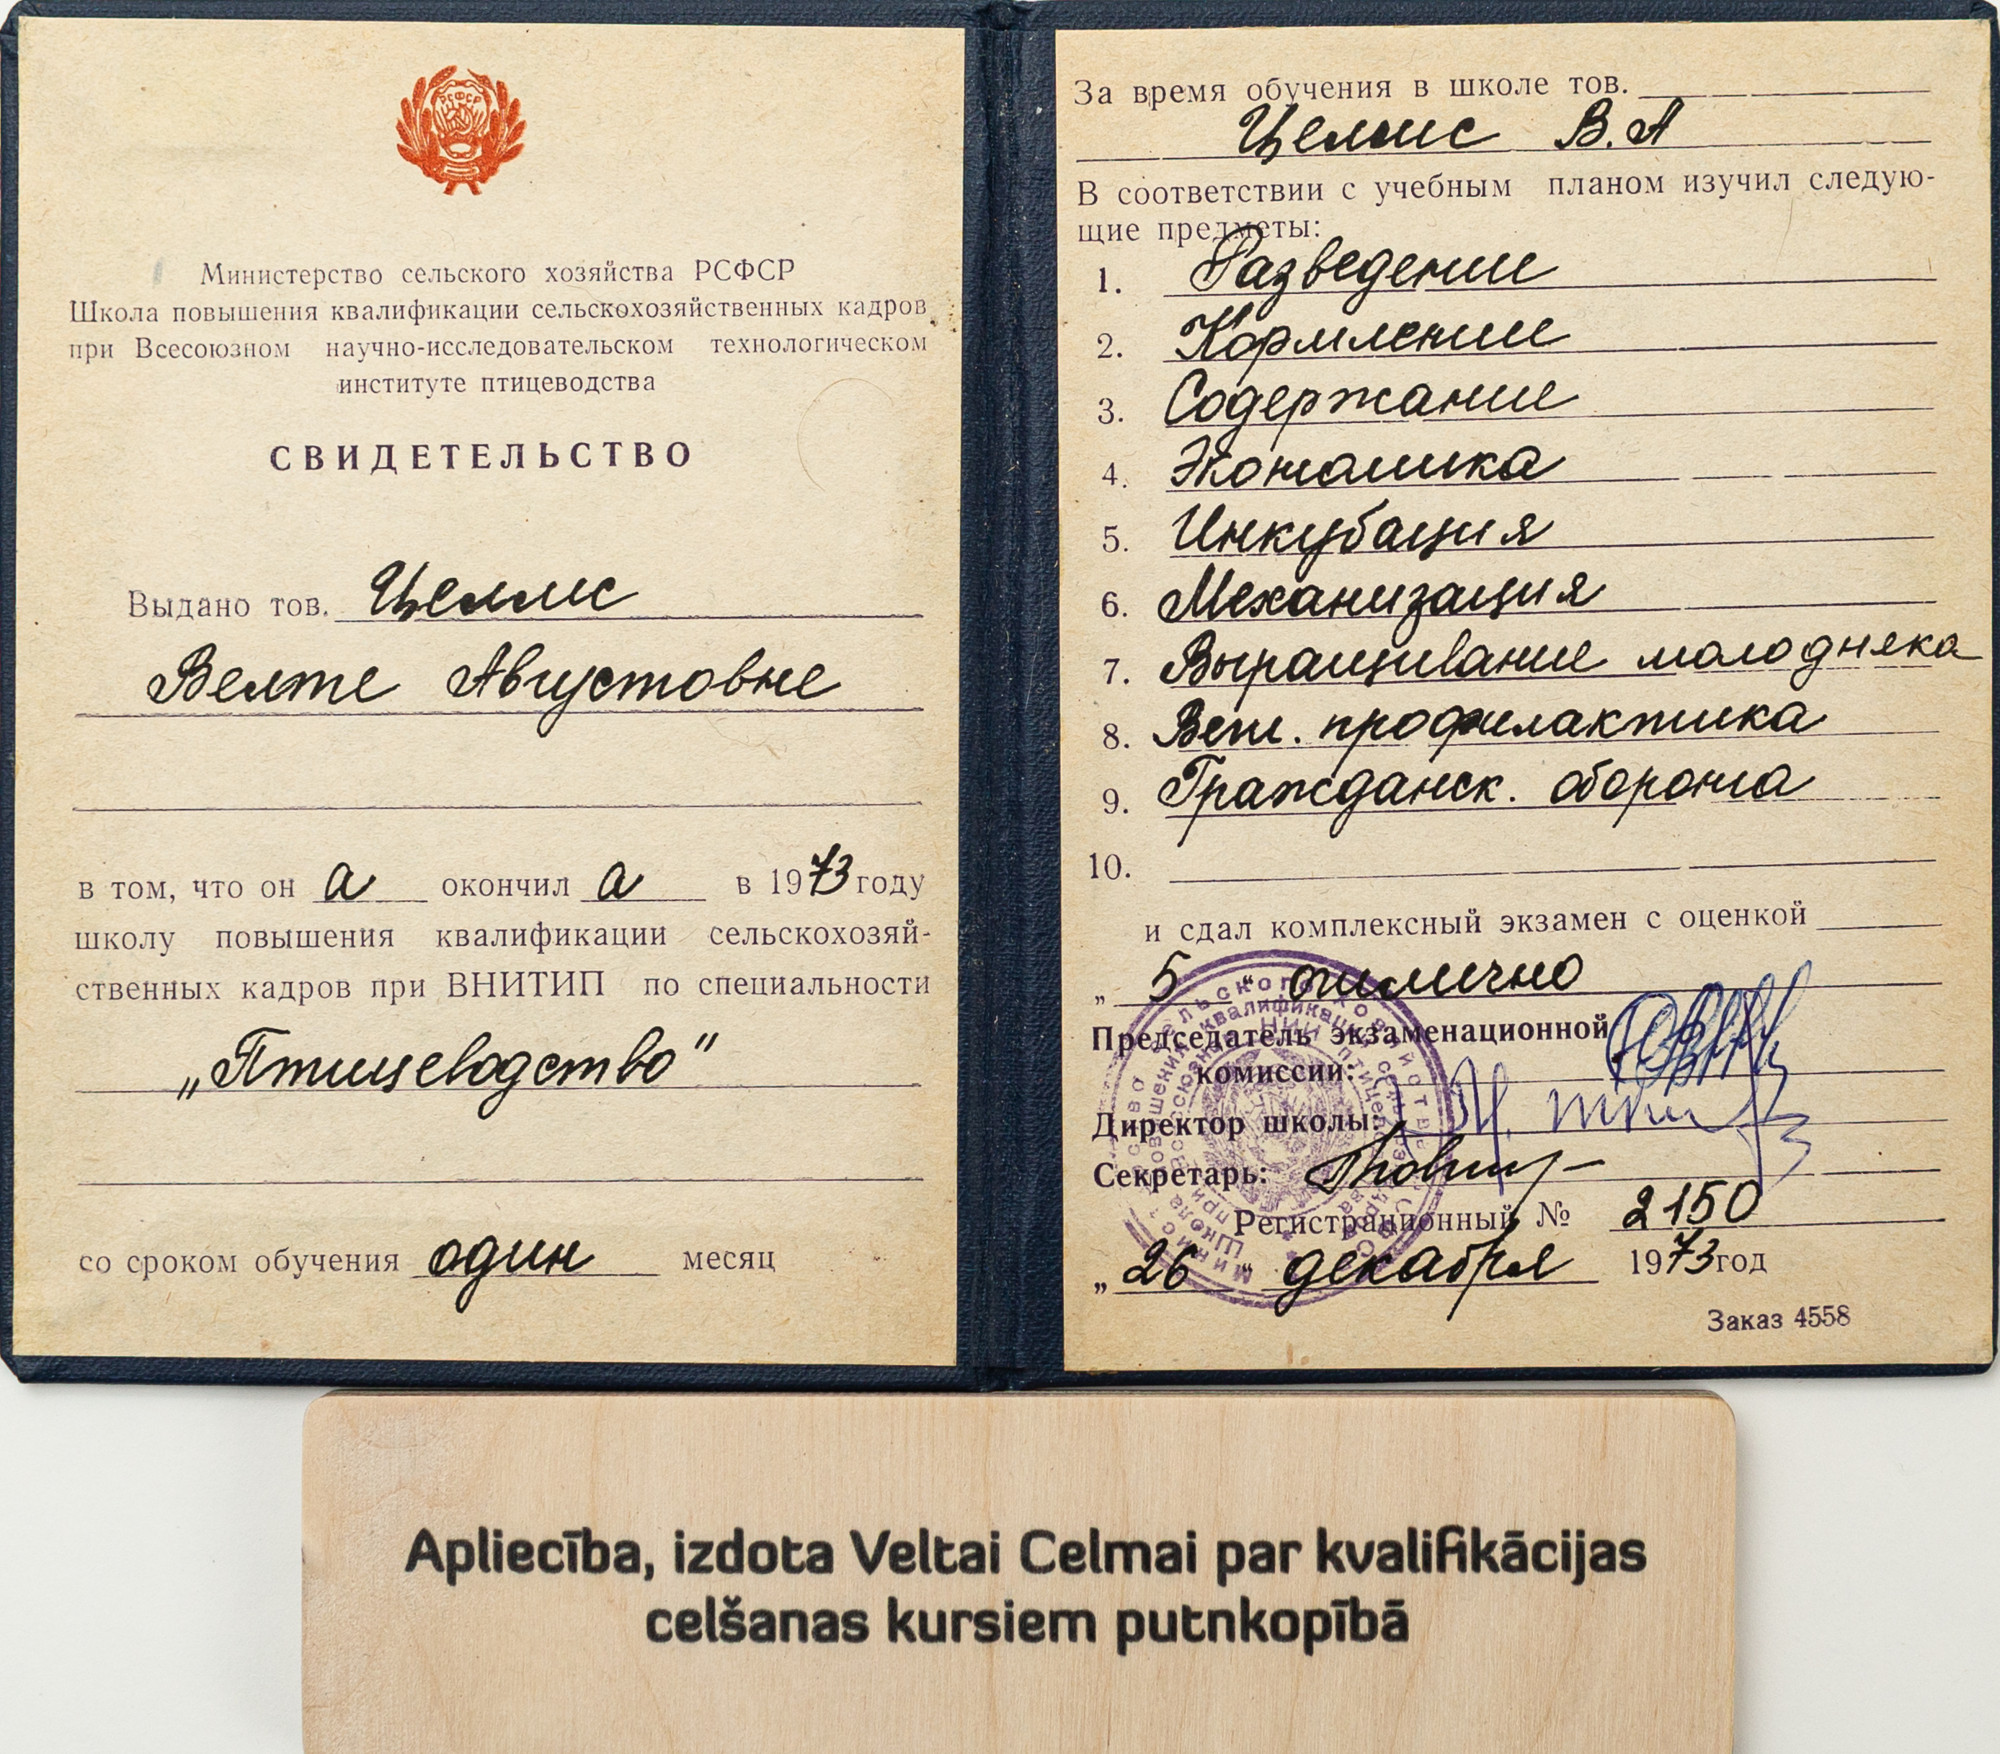 РСФСР
Министерство сельского хозяйства РСФСР
Школа повышения квалификации сельскохозяйственных кадров
при Всесоюзном научно-исследовательском технологическом
институте птицеводства
СВИДЕТЕЛЬСТВО
Выдано тов. Целмс
Велте Августовне
в том, что он а окончил а в 1973 году
школу повышения квалификации сельскохозяй-
ственных кадров при ВНИТИП по специальности
„Птицеводство"
со сроком обучения один месяц
За время обучения в школе тов.
Целмс В.А
В соответствии с учебным планом изучил следую-
щие предметы:
1. Разведение
2. Кормление
3. Содержание
4. Экономика
5. Инкубация
6. Механизация
7. Выращивание молодняка
8. Вет. профилактика
9. Гражданск. оборона
10.
и сдал комплексный экзамен с оценкой
„ 5 " отлично
Председатель экзаменационной
комиссии:
Директор школы:
Секретарь:
Регистрационный № 2150
„ 26 " декабря 1973 год
Заказ 4558
Apliecība, izdota Veltai Celmai par kvalifikācijas
celšanas kursiem putnkopībā